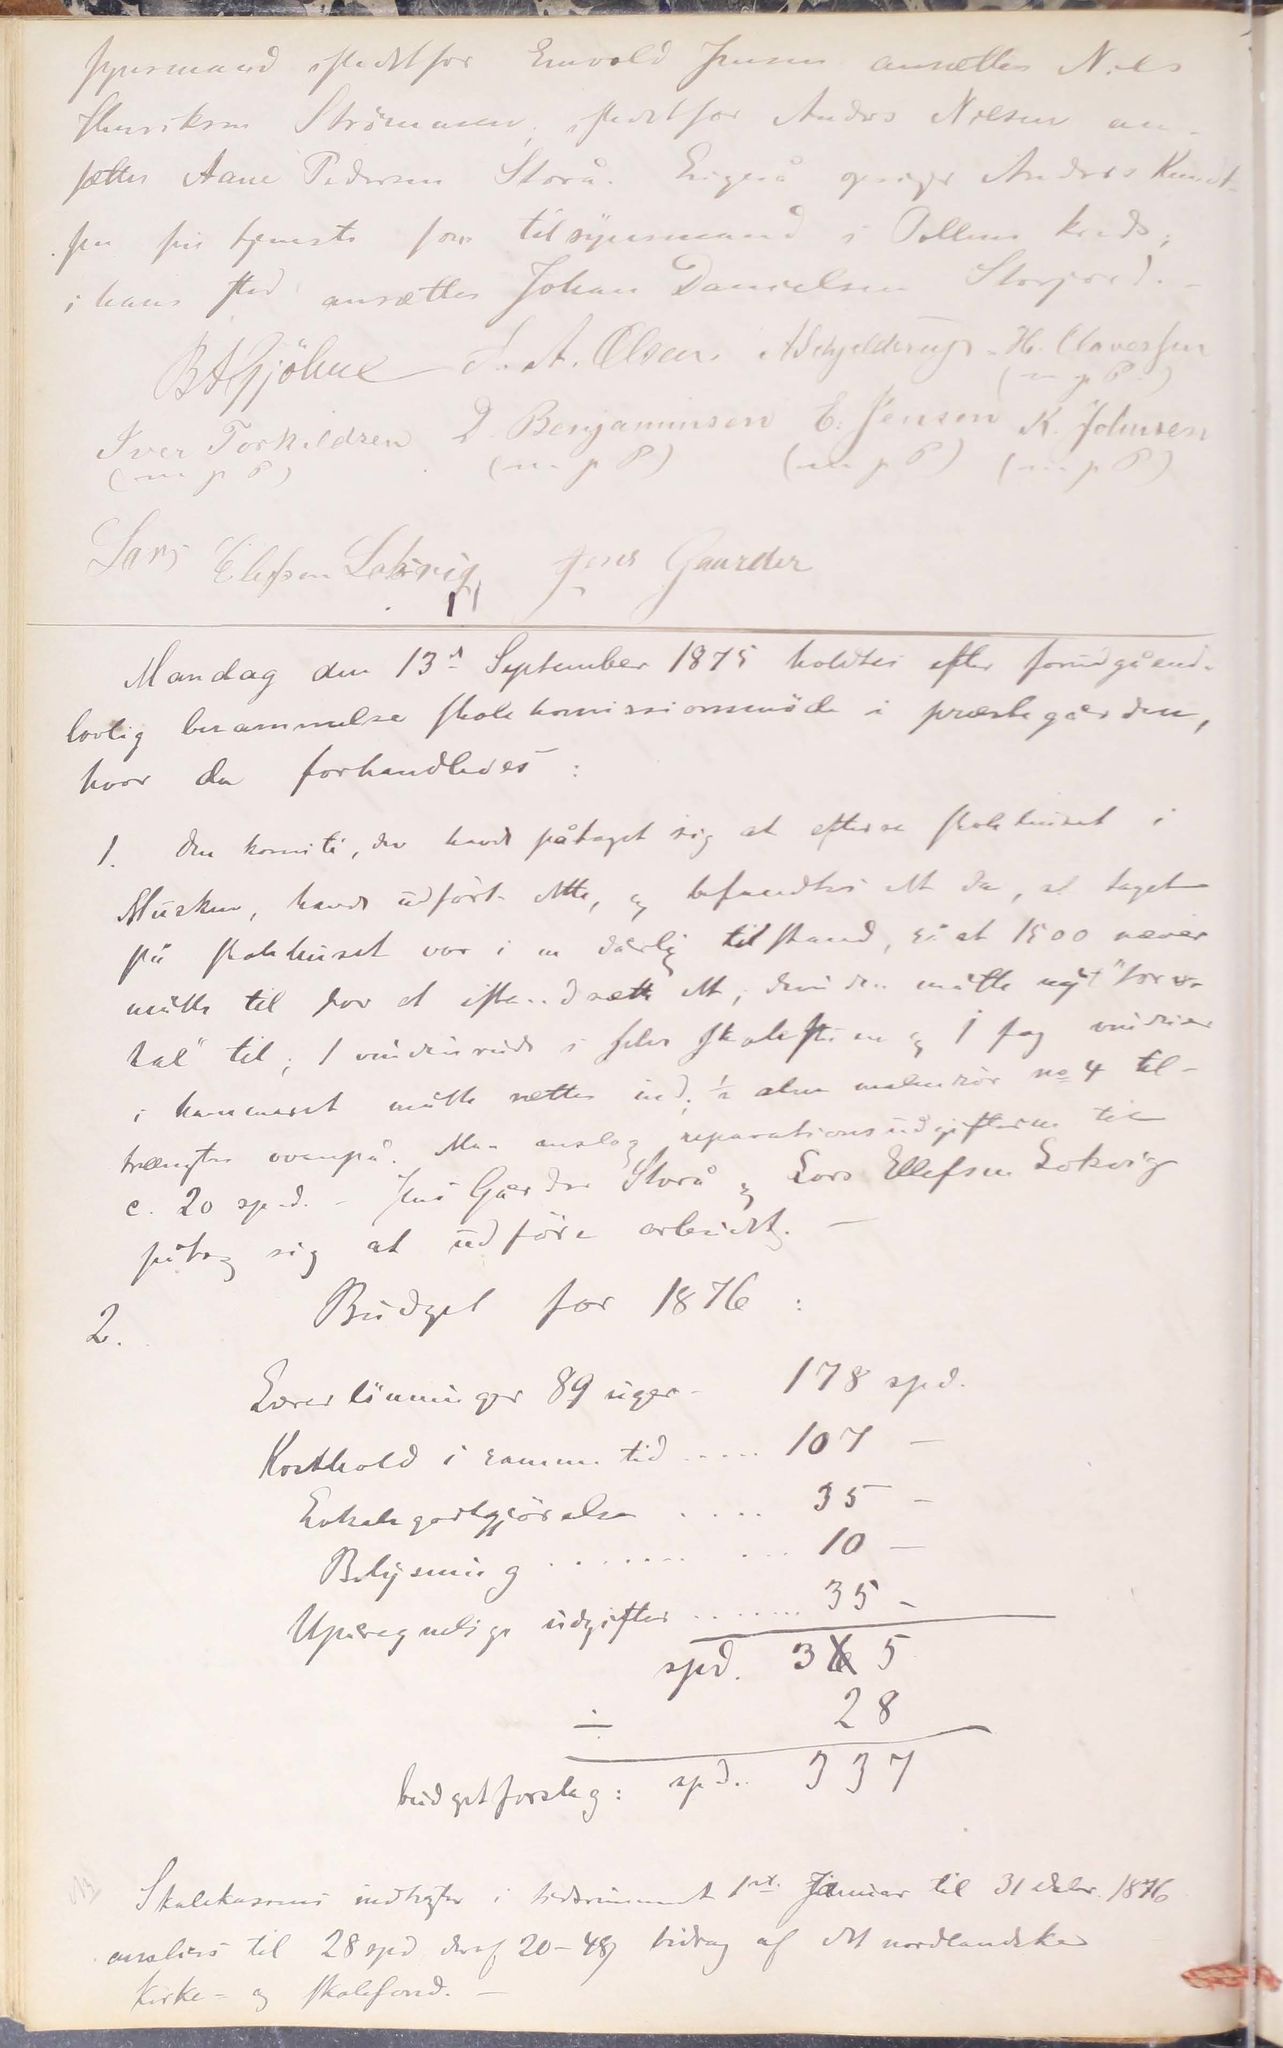 synsmand istedetfor Enevold Jensen ansættes Niels
Henriksen Strömmen, istedetfor Anders Nilsen an-
sættes Aane Pedersen Storå. Ligeså opsiger Anders Knudt-
sen sin tjeneste som tilsynsmand i Pollens kreds,
i hans sted ansættes Johan Danielsen Storjord. -
B A Gjölme J. A. Olsen. ASchjelderup. H. Clavessen
(m p P.)
Iver Torkildsen D. Benjaminsen E. Jensen K. Johnsen
(m p P) (m p P) (m p P) (m p P)
Lars Ellefsen Lokvig Jens Gaarder
Mandag den 13de September 1875 holdtes efter forudgående
lovlig berammelse skolekomissionsmöde i præstegården,
hvor da forhandledes:
1. Den komité, der havde påtaget sig at efterse skolehuset i
Musken, havde udfört dette, og befandtes det da, at taget
på skolehuset var i en dårlig tilstand, så at 1500 næver
måtte til for at istandsætte det; desuden måtte nyt "torv-
hal" til; 1 vinduesrude i selve skolestuen og 1 fag vinduer
i kammeret måtte sættes ind; ½ alen malmrör no 4 til-
trængtes ovenpå. Man anslog reparationsudgifterne til
c. 20 spd. - Jens Gaarder Storå og Lars Ellefsen Lokvig
påtog sig at udföre arbeidet. -
2. Budget for 1876:
Lærerlönninger 89 uger - 178 spd.
Kosthold i samme tid ..... 107 -
Lokalegodtgjörelse ..... 35 -
Belysning ........... 10 -
Uparegnelige udgifter ....... 35 -
spd. 365
÷ 28
budgetforslag: spd.. 337
Skolekassens indtægter i tidsrummet 1ste Januar til 31 decbr. 1876
ansloges til 28 spd deraf 20-48 bidrag af det nordlandske
kirke- og skolefond. -